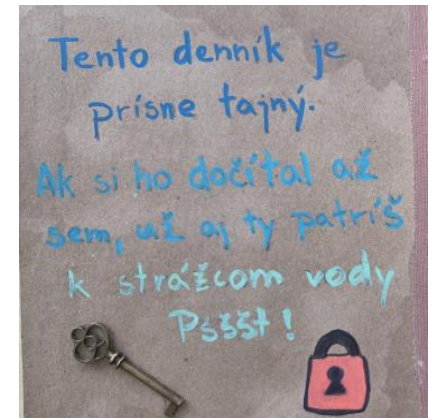 Tento denník je
prísne tajný.
Ak si ho dočítal až
sem, už aj ty patríš
k strážcom vody
Pšššt!